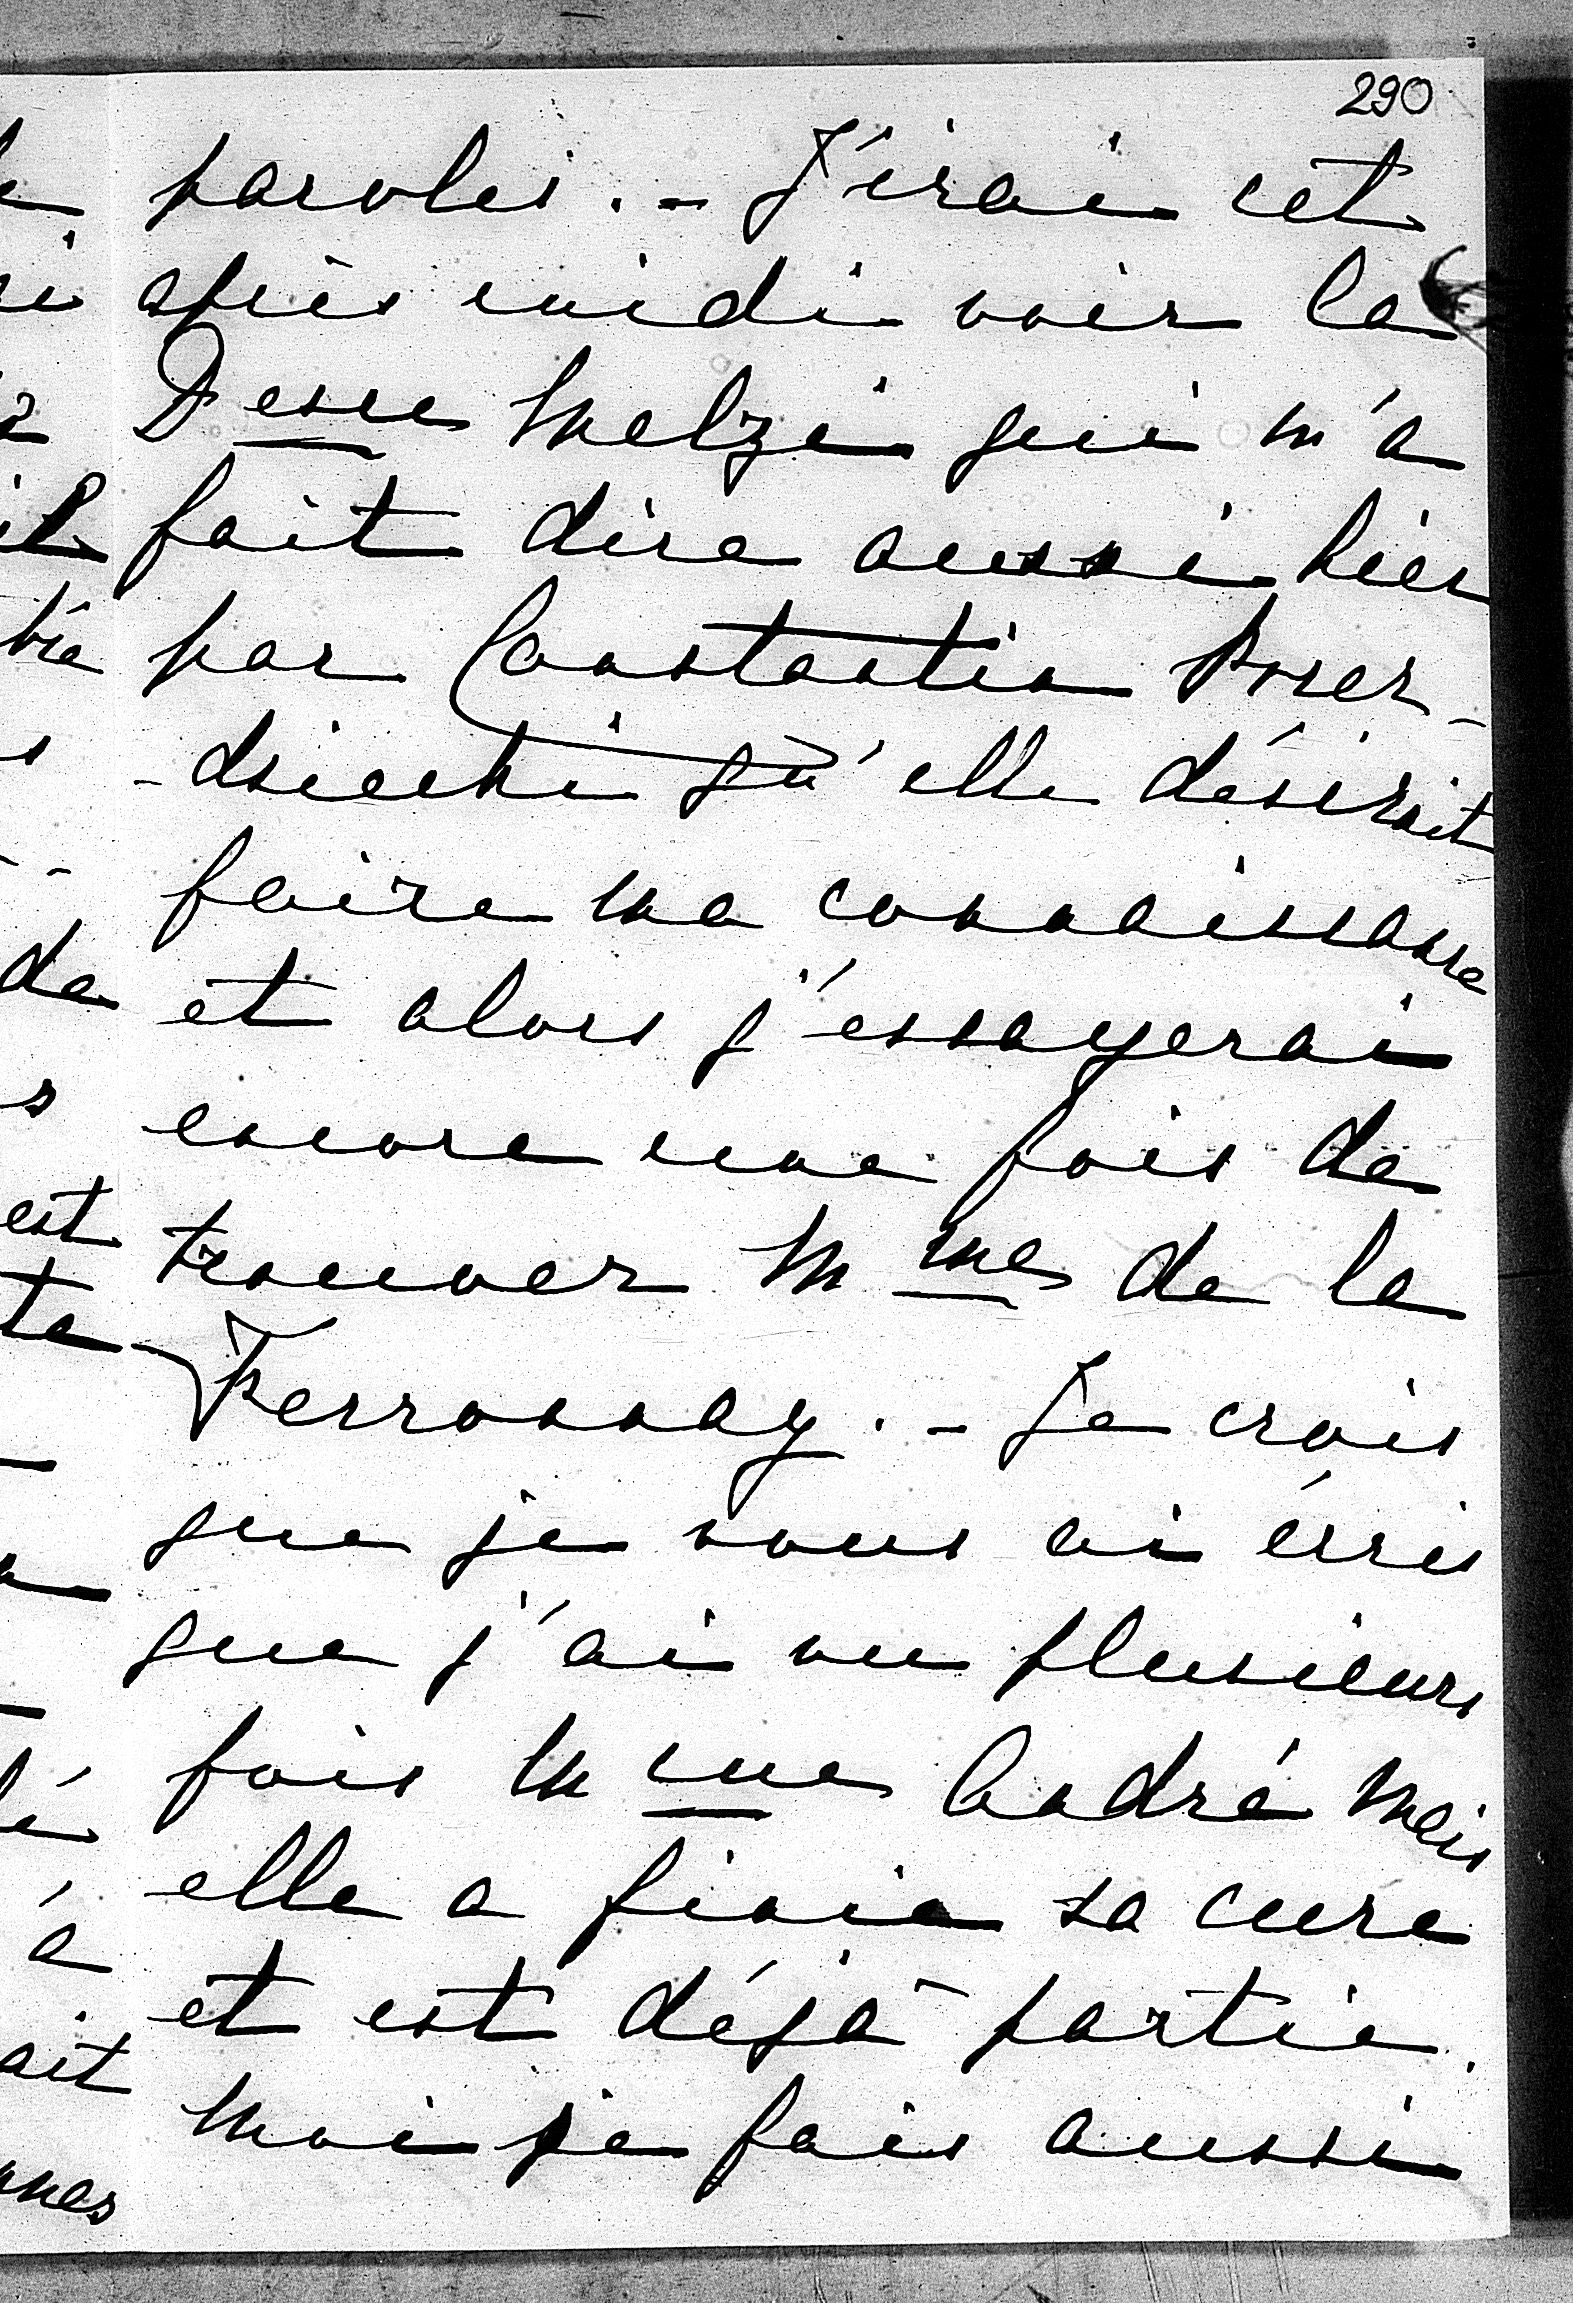 290
paroles. - J'irai cet
après midi voir la
Desse Melzi qui m'a
fait dire aussi hier
par Constantin
qu'elle désirait
faire ma connaissance
et alors j'essayerai
encore une fois de
trouver Mmes de la
Ferronnay. - Je crois
que je vous ai écris
que j'ai vu plusieurs
fois Mme André mais
elle a finie sa cure
et est déjà partie.
Moi je fais aussi